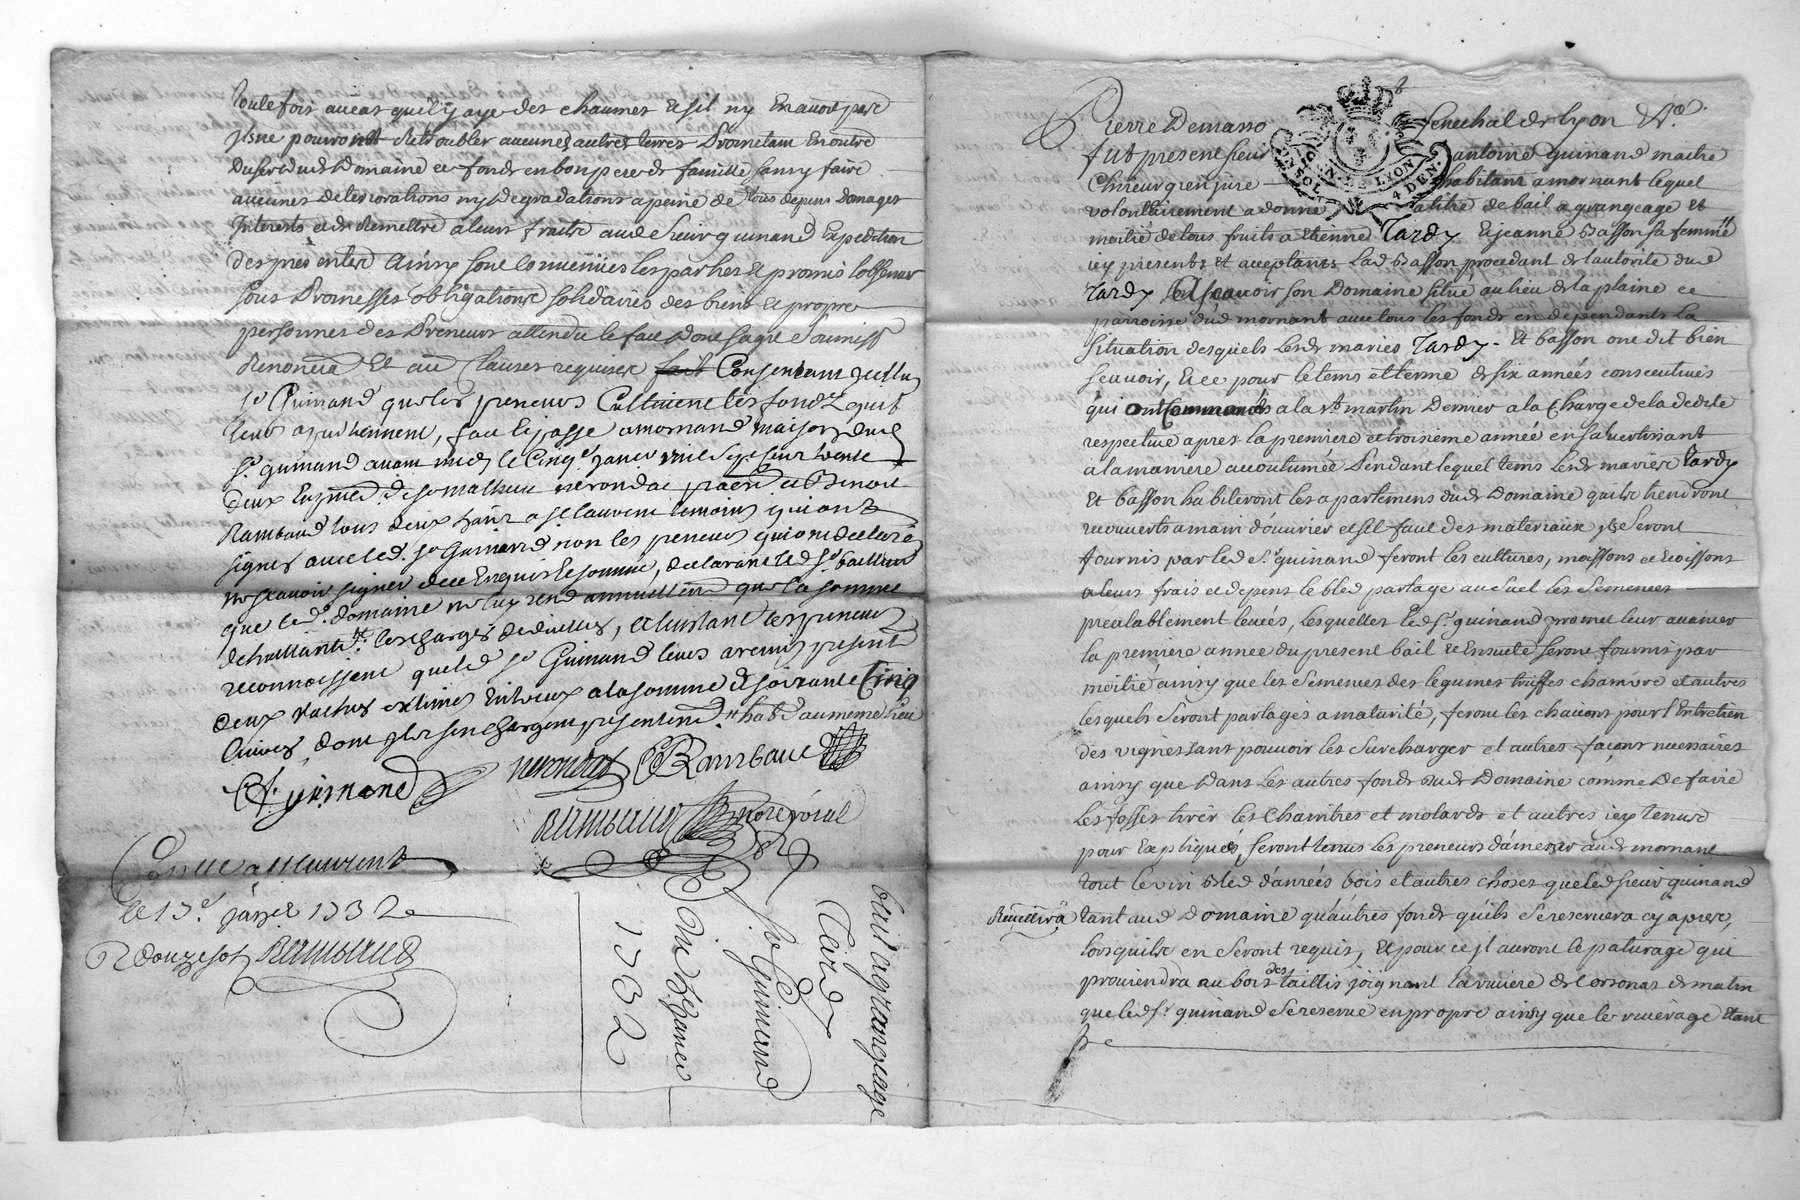 Pierre Demasso Senechal de lyon &c.
fut present sieur antoine guinand maitre
Chirurgien juré habitant a mornant lequel
volontairement a donné a titre de bail a grangeage et
moitié de tous fruits a Etienne Tardy et jeanne basson sa femme
icy presents et acceptants lad basson procedant de l'autorité dud
Tardy scavoir son Domaine situé au lieu de la plaine
parroisse dud mornant avec tous les fonds en dependants la
situation desquels lesd mariés Tardy et basson ont dit bien
scavoir, et ce pour le tems et terme de six années consecutives
qui ont Commancés a la st martin Dernier a la Charge de la dedite
respective apres la premiere et troisieme année en s'avertissant
a la maniere accoutumée Pendant lequel tems lesd mariés Tardy
Et basson habiteront les apartemens dud Domaine qu'ils tiendront
recouverts a main d'ouvrier et s'il faut des materiaux ils seront
fournis par led sr. guinand feront les cultures, moissons et
a leurs frais et depens le bled partagé au les semences
prealablement levées, lesquelles led sr. guinand promet leur avancer
la premiere année du present bail et Ensuite seront fournis par
moitié ainsy que les semences des legumes truffes chanvre et autres
lesquels seront partagés a maturité, feront les chavons pour l'Entretien
des vignes sans pouvoir les surcharger et autres façons necessaires
ainsy que dans les autres fonds dud Domaine comme de faire
les fosses tirer les Chaintres et molards et autres icy tenus
pour Expliqués, seront tenus les preneurs d'amener aud mornant
tout le vin bled danrées bois et autres choses que led sieur guinand
Reuillira tant aud Domaine qu'autres fonds qu'il se reservera cy apres,
lorsqu'ils en seront requis, et pour ce il auront le paturage que
proviendra au bois des taillis joignant la riviere de
que led sr. guinand se reserve en propre ainsy que le rivérage Etant
pe
Toutefois au cas qu'il y aye des chaumes et s'il n'y En avoit pas
ils ne pourront detroubler aucunes autres terres Promettant En outre
user dud Domaine et fonds en bon pere de famille sans y faire
aucunes deteriorations ny degradations a peine de tous depens Domages
Interets et de remettre a leurs fraits aud sieur guinand Expedition
des presentes Ainsy sont Convenües les parties et promis l'observer
sous Promesses obligations solidaires des biens et propres
personnes des Preneurs attendu le fait dont sagit soumiss
Renoncia Et aut Clauses requises fait Consentant
sr Guinand que les preneurs Cultivent les fonds
leur apartiennent, fait et passé a mornant maison dud
sr. guinand avant midy le Cinqe. janvier mil sept cent trente
deux En presence de sr mathieu nerondat et Benoit
Rambaud tous deux a st laurent temoins qui ont
signés avec led. sr Guinand non les preneurs qui ont declaré
ne scavoir signer de ce Enquis et sommé, declarant led sr. bailleur
que led. domaine ne luy rend annuellement que la somme
de trente les charges deduittes, et a l'instant les preneurs
reconnoissent que led sr Guinand leur a remis presentt
deux vaches extimés Entreux a la somme de soixante Cinq
livres, dont ils sen chargent presentement. habt au meme lieu
Guinand nerondat B Rambaud
Rambaud notre royal
Conllé a st laurent
le 13e. janvier 1732
R douze sols Rambaud
bail a grangeage
Tardy
Sr Guinand
Du 5 janvier
1732
GEN. DE LYON
UN SOL 4 DEN.